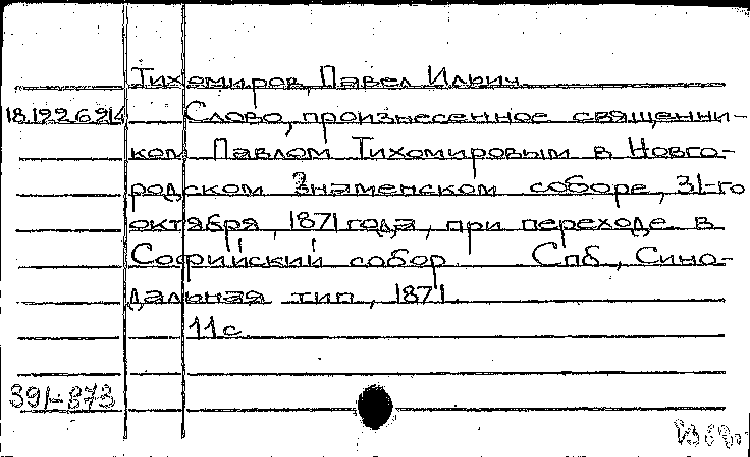 Тихомиров, Павел Ильич
18.122.6.214 Слово, произнесенное священни-
ком Павлом Тихомировым в Новго-
родском Знаменском соборе, 31-го
октября, 1871 года, при переходе в
Софийский собор Спб., Сино-
дальная тип., 1871.
11 с.
391-873